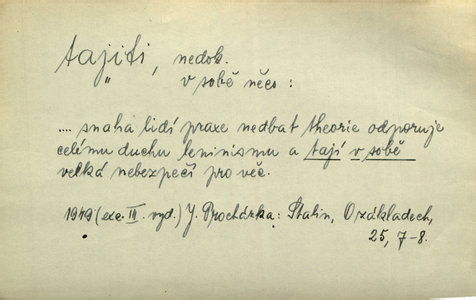 tajiti, nedok.
" v sobě něco :
.... snaha lidí praxe nedbat theorie odporuje
celému duchu leninismu a tají v sobě
velká nebezpečí pro věc.
1949 (exc. III. vyd.) J. Procházka: Stalin, O základech,
25, 7-8.